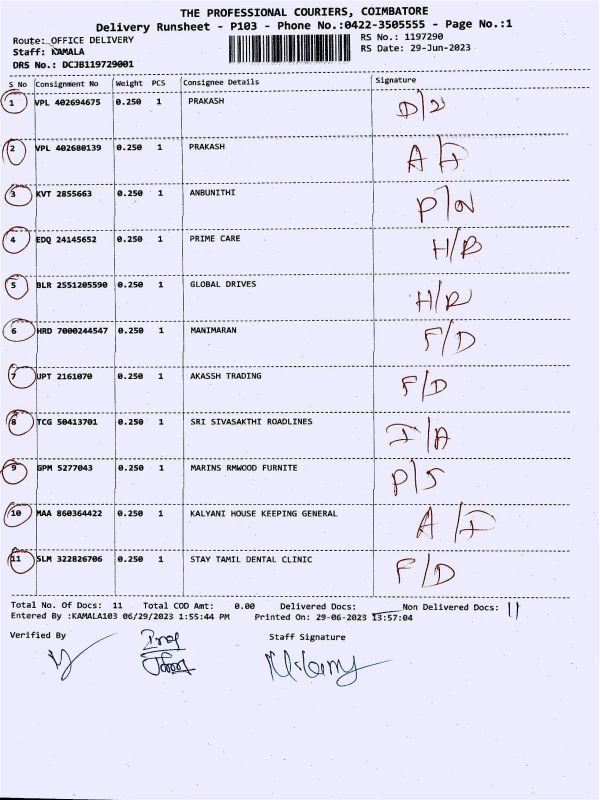 THE PROFESSIONAL COURIERS, COIMBATORE
Delivery Runsheet - P103 - Phone No.:0422-3505555 - Page No.:1
Route: OFFICE DELIVERY RS No.: 1197290
Staff: KAMALA RS Date: 29-Jun-2023
DRS No.: DCJB119729001
S No Consignment No Weight PCS Consignee Details Signature
1 VPL 402694675 0.250 1 PRAKASH
2 VPL 402680139 0.250 1 PRAKASH A/I
3 KVT 2855663 0.250 1 ANBUNITHI P/N
4 EDQ 24145652 0.250 1 PRIME CARE H/R
5 BLR 2551205590 0.250 1 GLOBAL DRIVES H/R
6 HRD 7000244547 0.250 1 MANIMARAN F/D
7 UPT 2161070 0.250 1 AKASSH TRADING F/D
8 TCG 50413701 0.250 1 SRI SIVASAKTHI ROADLINES I/A
9 GPM 5277043 0.250 1 MARINS RMWOOD FURNITE P/S
10 MAA 860364422 0.250 1 KALYANI HOUSE KEEPING GENERAL A/I
11 SLM 322826706 0.250 1 STAY TAMIL DENTAL CLINIC F/D
Total No. Of Docs: 11 Total COD Amt: 0.00 Delivered Docs: Non Delivered Docs: 11
Entered By :KAMALA103 06/29/2023 1:55:44 PM Printed On: 29-06-2023 13:57:04
Verified By Staff Signature